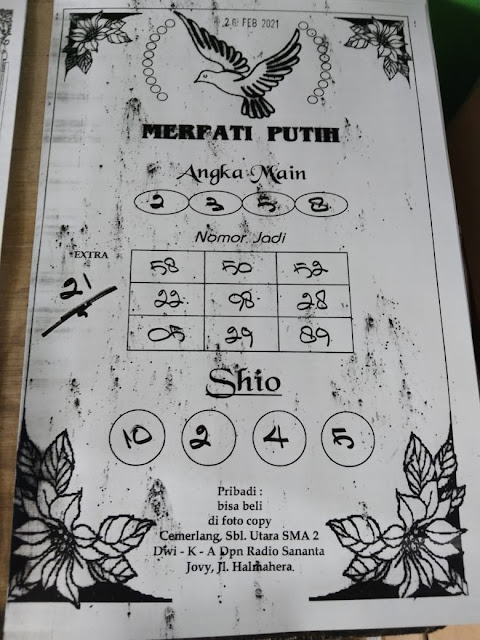 26 FEB 2021
MERPATI PUTIH
Angka Main
2 3 5 8
Nomor Jadi
EXTRA
21
58 50 52
22 98 28
05 29 89
Shio
10 2 4 5
Pribadi :
bisa beli
di foto copy
Cemerlang, Sbl. Utara SMA 2
Dwi - K - A Dpn Radio Sananta
Jovy, Jl. Halmahera.